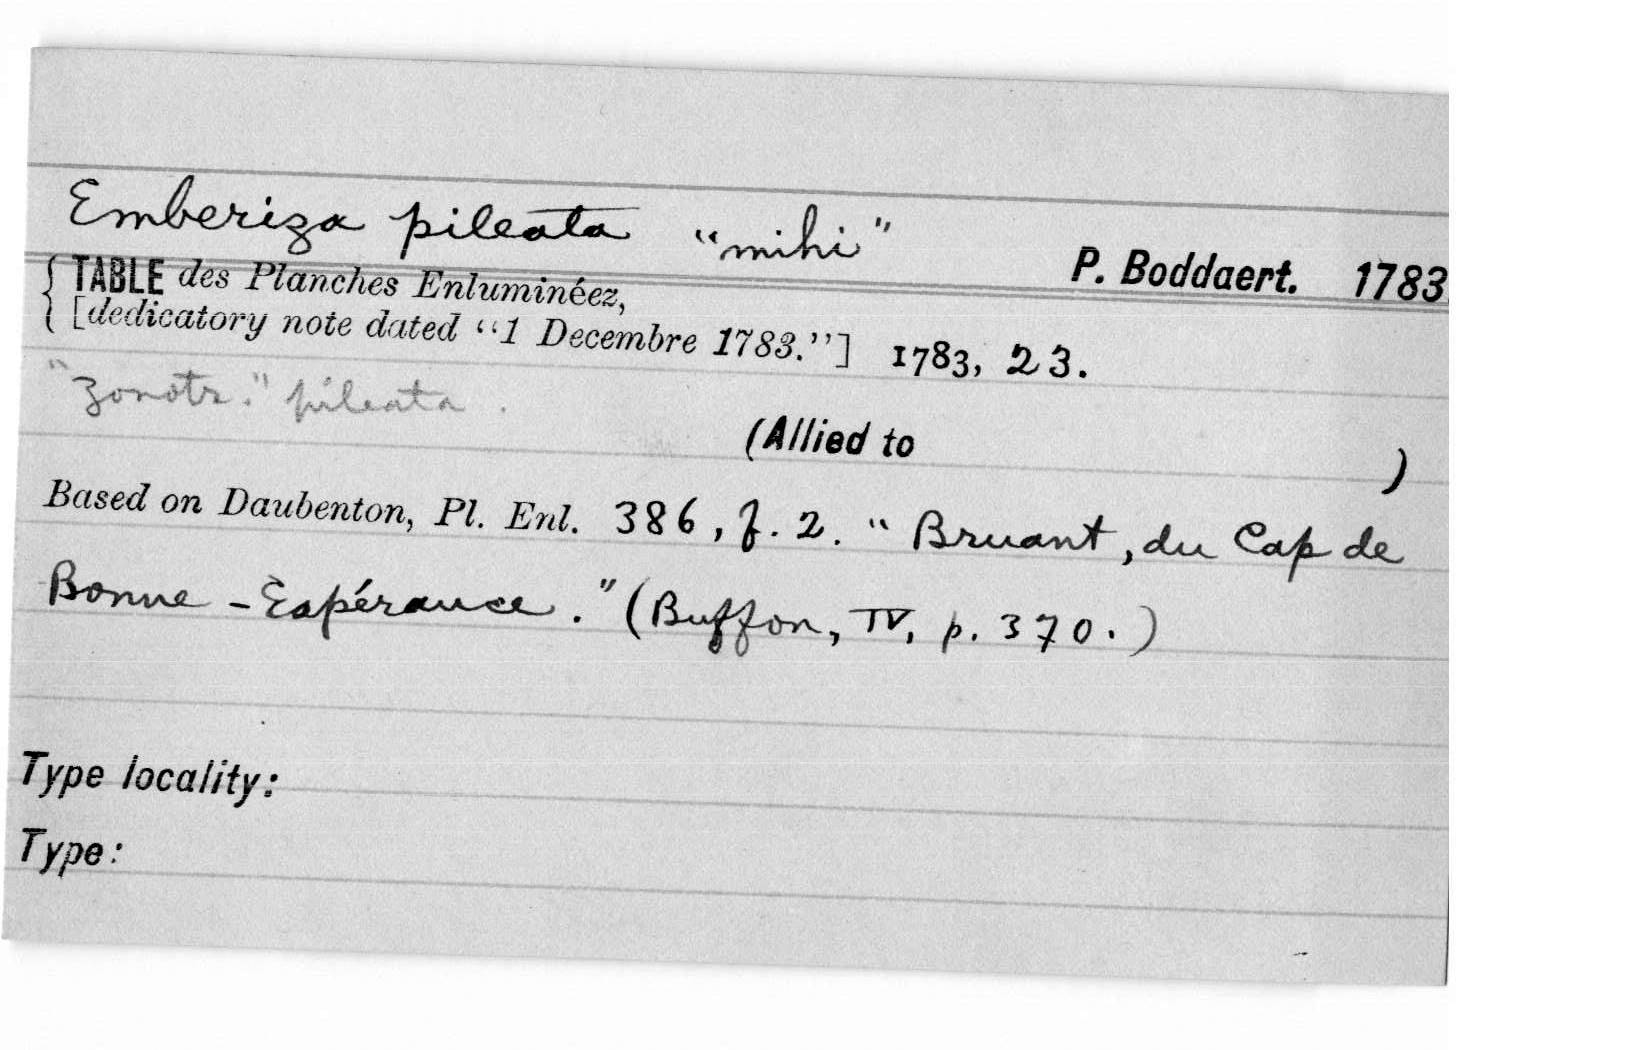 Emberiza pileata "mihi"
P. Boddaert. 1783.
{ TABLE des Planches Enluminéez,
[dedicatory note dated "1 Decembre 1783."] 1783, 23.
"Zonotr." pileata.
(Allied to )
Based on Daubenton, Pl. Enl. 386, f. 2. "Bruant, du Cap de
Bonne-Espérance." (Buffon, IV, p. 370.)
Type locality:
Type: